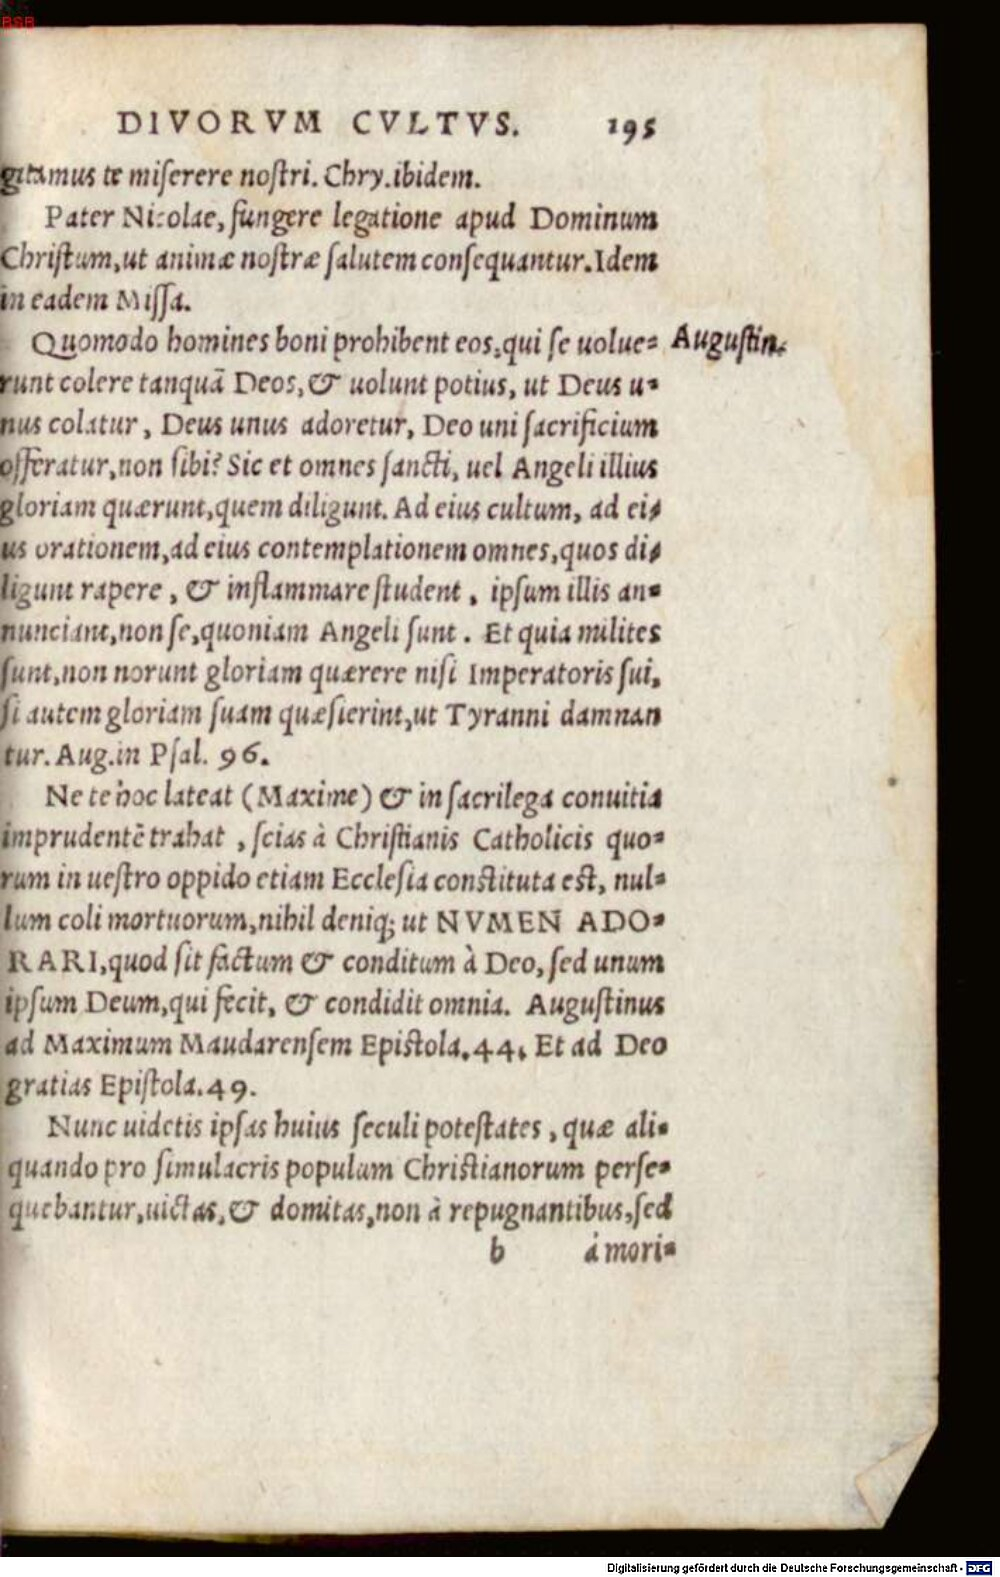 BSB
DIVORVM CVLTVS. 195
gitamus te miſerere noſtri. Chry. ibidem.
Pater Nicolae, fungere legatione apud Dominum
Chriſtum, ut animæ noſtræ ſalutem conſequantur. Idem
in eadem Miſſa.
Quomodo homines boni prohibent eos, qui ſe uolue- Auguſtin.
runt colere tanquā Deos, & uolunt potius, ut Deus u-
nus colatur, Deus unus adoretur, Deo uni ſacrificium
offeratur, non ſibi? Sic et omnes ſancti, uel Angeli illius
gloriam quærunt, quem diligunt. Ad eius cultum, ad ei-
us orationem, ad eius contemplationem omnes, quos di-
ligunt rapere, & inflammare ſtudent, ipſum illis an-
nunciant, non ſe, quoniam Angeli ſunt. Et quia milites
ſunt, non norunt gloriam quærere niſi Imperatoris ſui,
ſi autem gloriam ſuam quæſierint, ut Tyranni damnan
tur. Aug. in Pſal. 96.
Ne te hoc lateat (Maxime) & in ſacrilega conuitia
imprudentē trahat, ſcias à Chriſtianis Catholicis quo-
rum in ueſtro oppido etiam Eccleſia conſtituta eſt, nul-
lum coli mortuorum, nihil deniq; ut NVMEN ADO-
RARI, quod ſit factum & conditum à Deo, ſed unum
ipſum Deum, qui fecit, & condidit omnia. Auguſtinus
ad Maximum Maudarenſem Epiſtola. 44. Et ad Deo
gratias Epiſtola. 49.
Nunc uidetis ipſas huius ſeculi poteſtates, quæ ali-
quando pro ſimulacris populum Chriſtianorum perſe-
quebantur, uictas, & domitas, non à repugnantibus, ſed
b à mori-
Digitalisierung gefördert durch die Deutsche Forschungsgemeinschaft - DFG